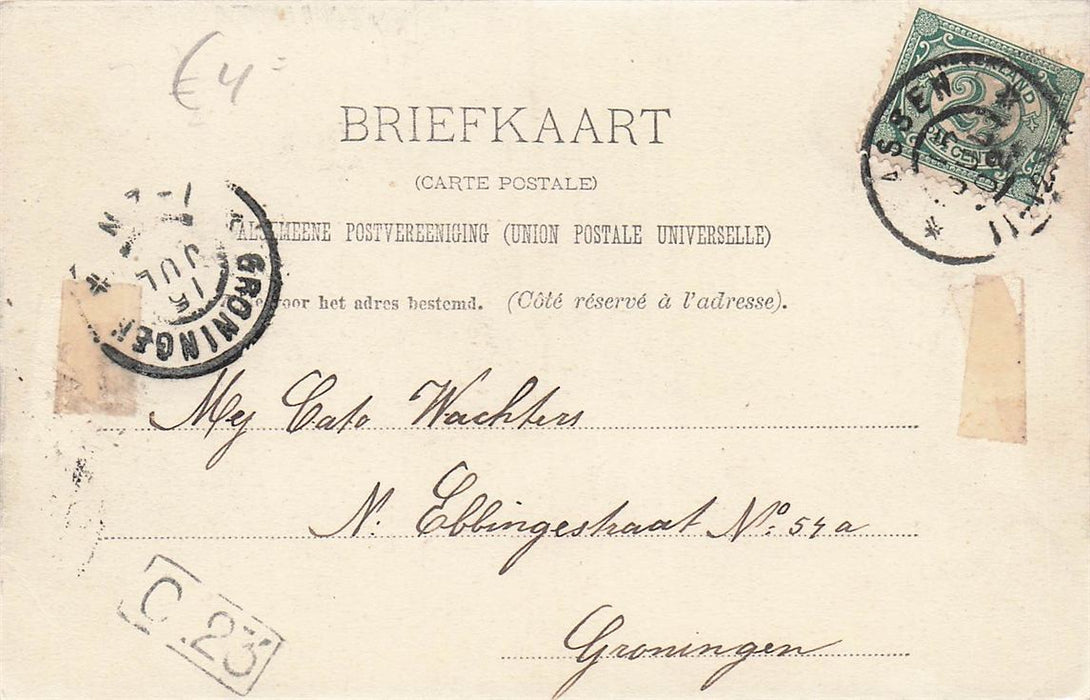 € 4 =
BRIEFKAART
(CARTE POSTALE)
ALGEMEENE POSTVEREENIGING (UNION POSTALE UNIVERSELLE)
voor het adres bestemd. (Côté réservé à l'adresse).
ASSEN
NEDERLAND
2½
CENT
GRONINGEN
15 JUL
Mej Cato Wachters
N. Ebbingestraat No. 54a
Groningen
C.23